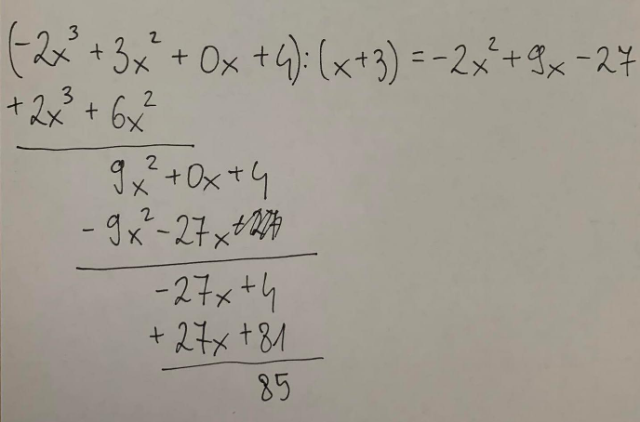 (-2x³ + 3x² + 0x + 4) : (x+3) = -2x² + 9x - 27
+ 2x³ + 6x²
9x² + 0x + 4
- 9x² - 27x
- 27x + 4
+ 27x + 81
85